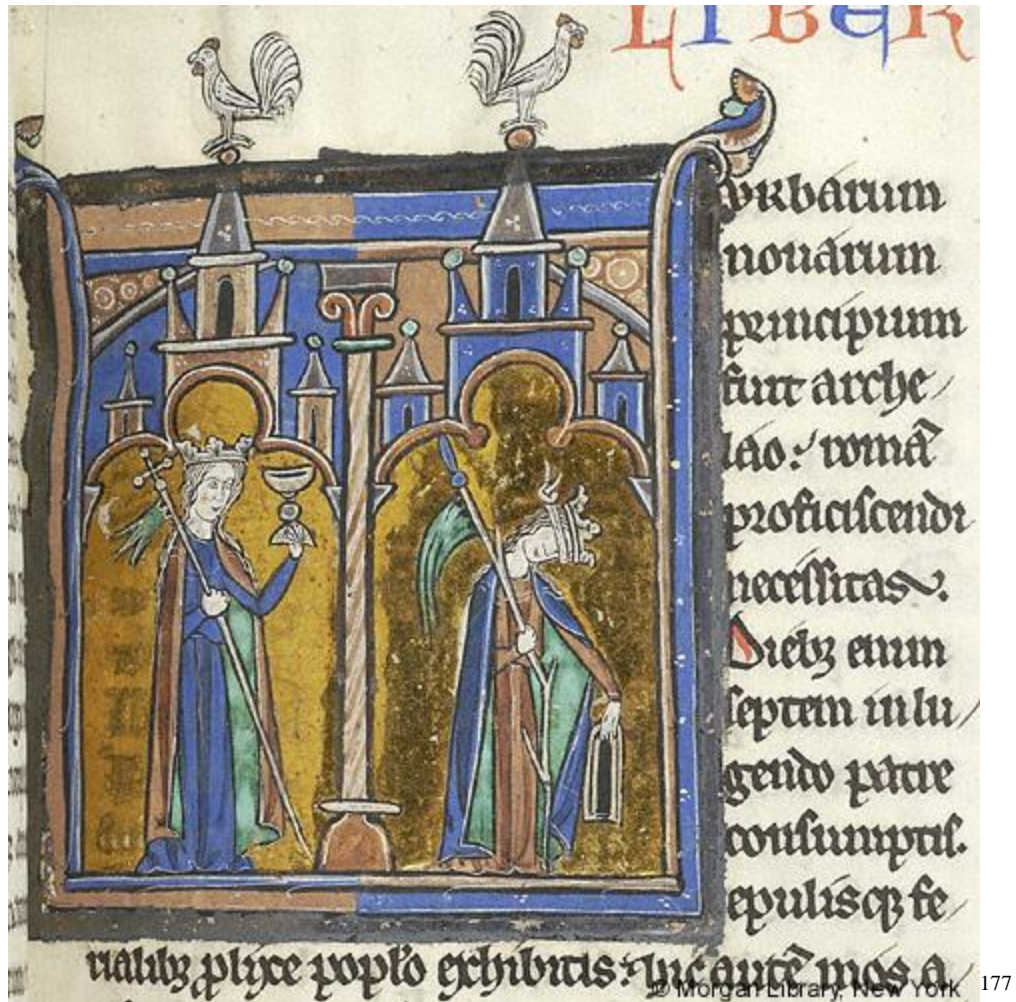 LIBER
vRbarum
nouarum
principium
fuit arche/
lao: romā
proficiscendi
necessitas.
Diebꝫ enim
septem in lu/
gendo patre
consumptis.
epulisqꝫ fe/
rialibꝫ ꝓlixe popl̄o exhibitis: hic autē mos a
© Morgan Library, New York
177